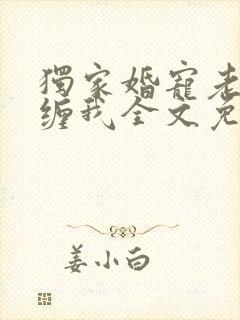 獨家婚寵老
缠我全文免
姜小白